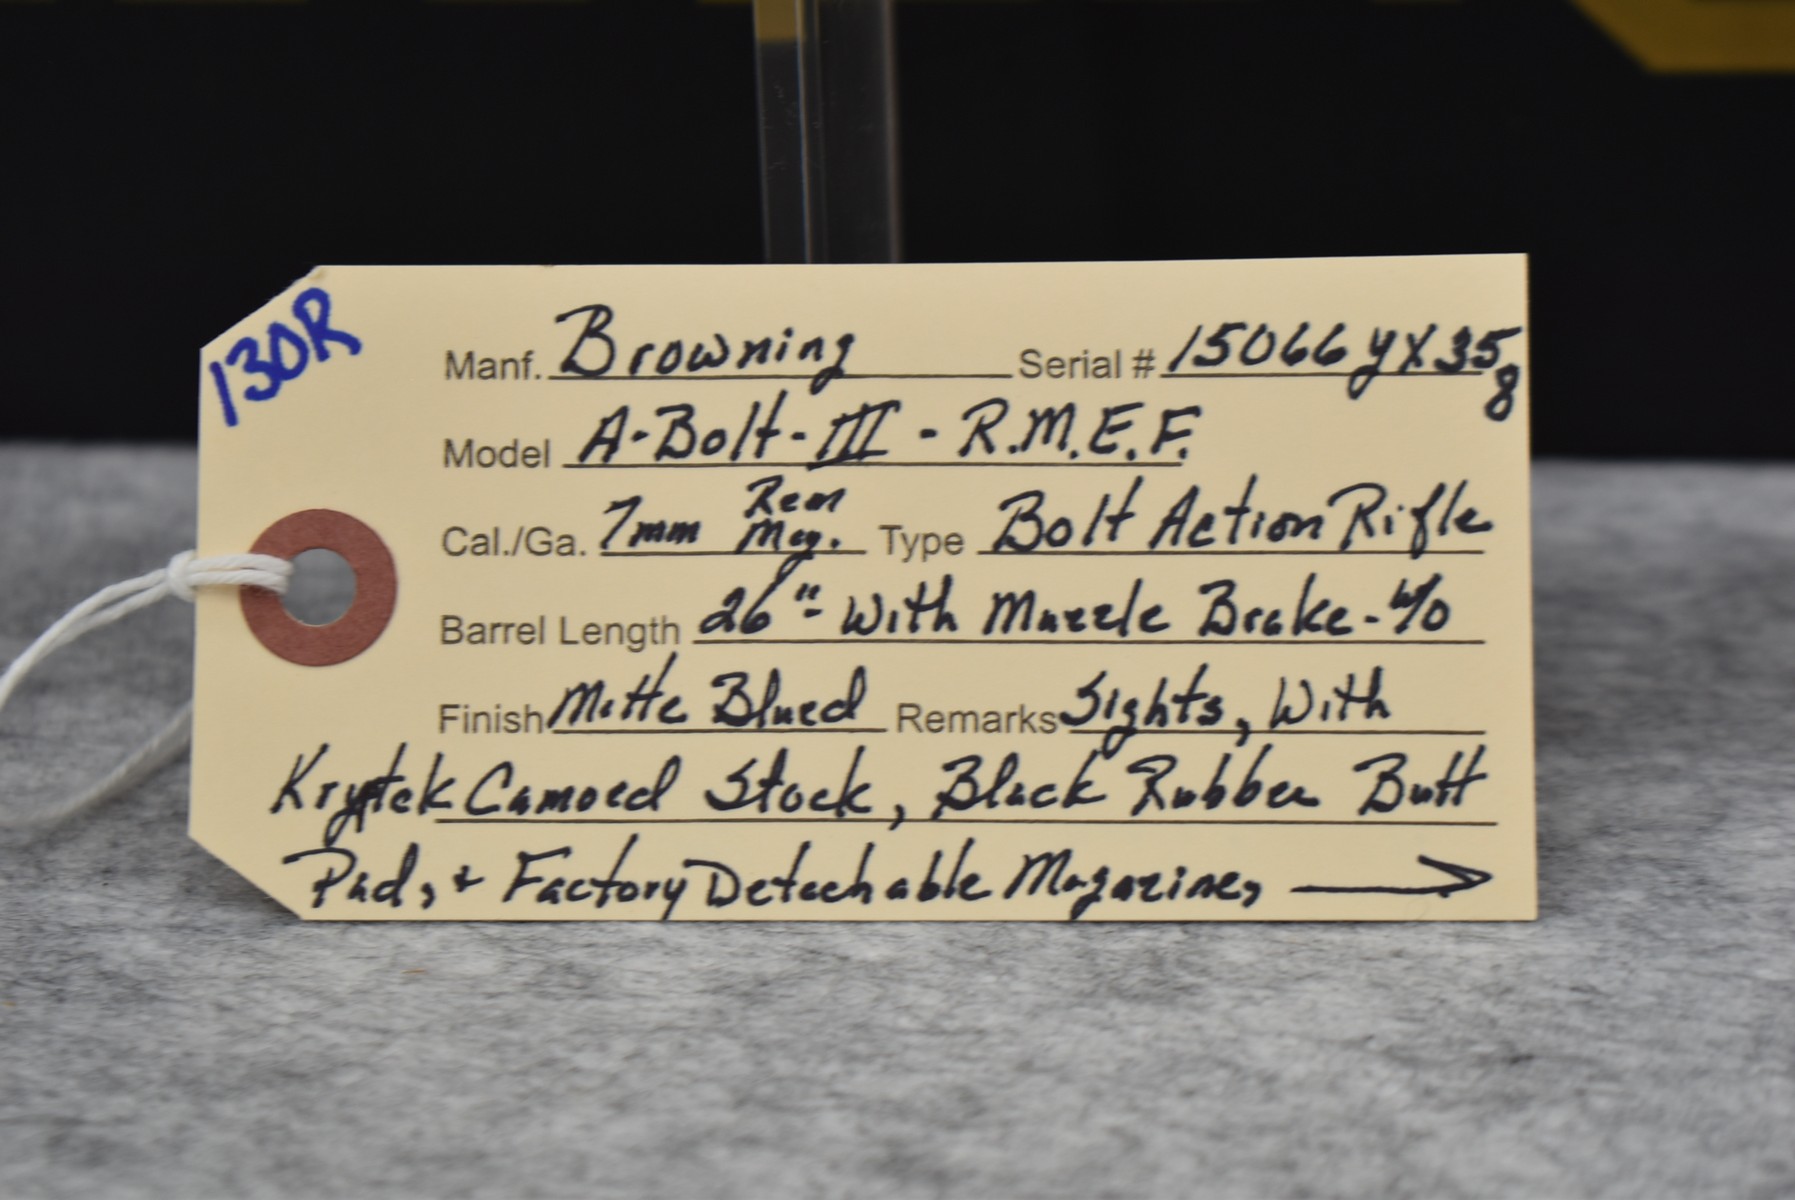 130R
Manf. Browning Serial # 15066YX358
Model A-Bolt-III - R.M.E.F.
Cal./Ga. 7mm Rem Mag. Type Bolt Action Rifle
Barrel Length 26"- With Muzzle Brake - w/o
Finish Matte Blued Remarks Sights, With
Kryptek Camoed Stock, Black Rubber Butt
Pad, + Factory Detachable Magazine, →